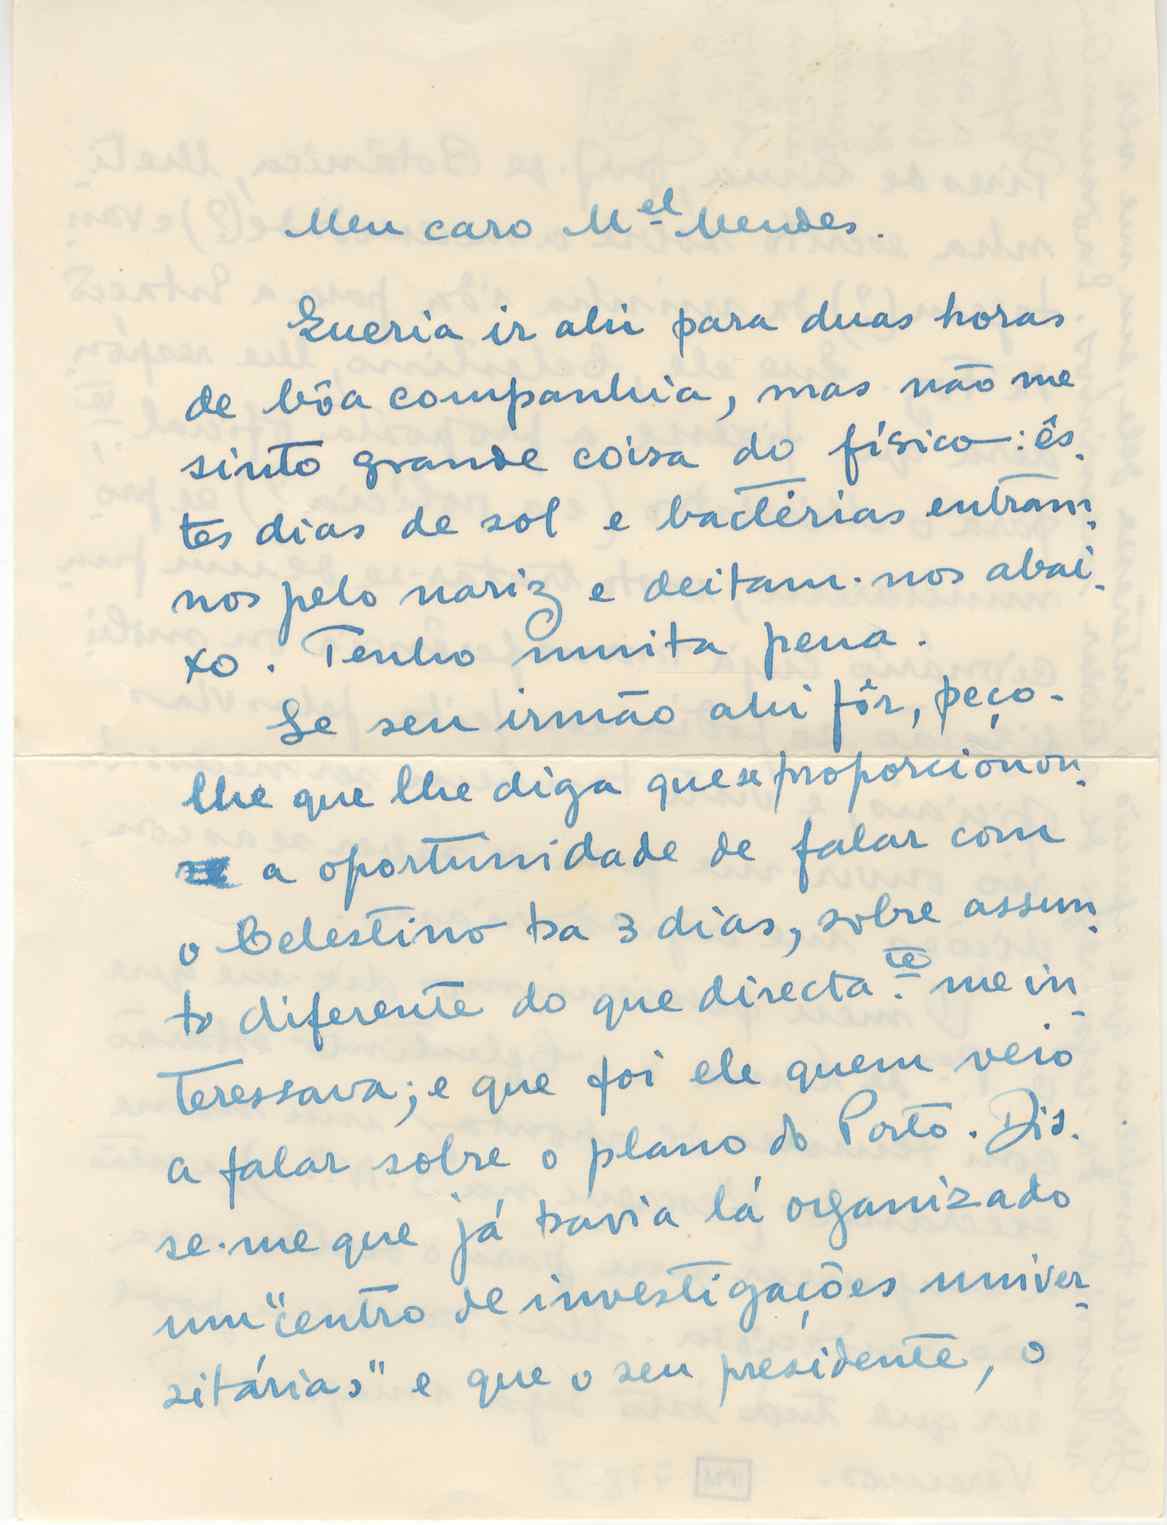 Meu caro Mel Mendes.
Queria ir ahi para duas horas
de bôa companhia, mas não me
sinto grande coisa do físico: ês-
tes dias de sol e bactérias entram-
nos pelo nariz e deitam-nos abai-
xo. Tenho muita pena.
Se seu irmão ahi fôr, peço-
lhe que lhe diga que se proporcionou-
a oportunidade de falar com
o Celestino ha 3 dias, sobre assun-
to diferente do que directa.te me in-
teressava; e que foi ele quem veio
a falar sobre o plano do Porto. Dis-
se-me que já havia lá organizado
um "centro de investigações univer-
sitárias" e que o seu presidente, o